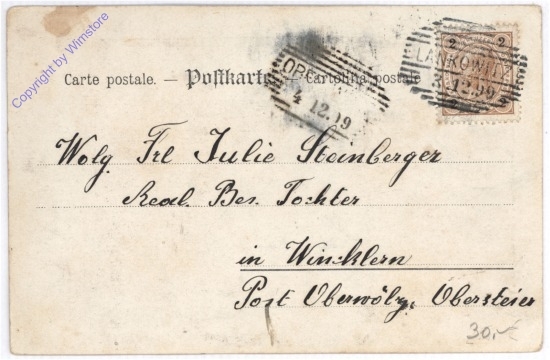 Copyright by Wimstore
2 2
LANKOWITZ
3.12.99
OB
4 12.19
Carte postale. — Postkarte — Cartolina postale
Wolg. Frl Julie Steinberger
Real. Bes. Tochter
in Wincklern
Post Oberwölz, Obersteier
30,-€